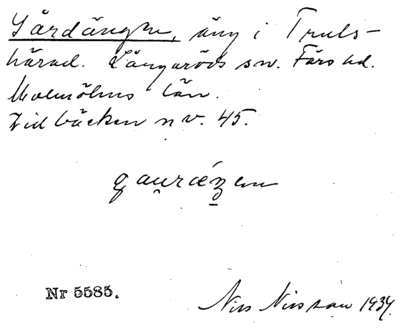 Gårdängen, äng i Truls-
härad. Långaröds sn. Färs hd.
Malmöhus län.
Vid bäcken n v. 45.
Nr 5585.
Nils Nilsson 1934.